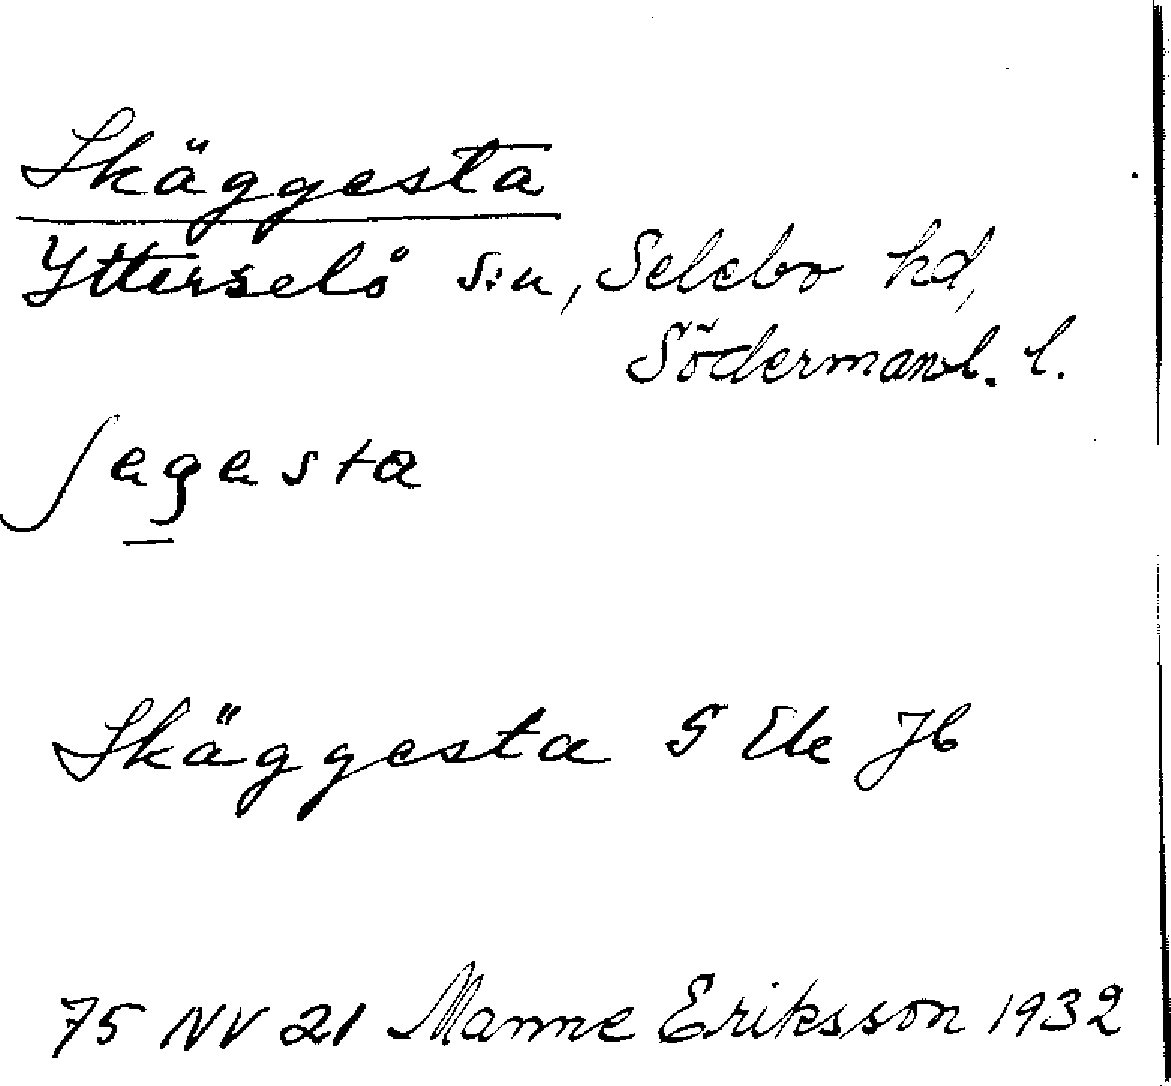 Skäggesta
Ytterselö s:n, Selebo hd,
Södermanl. l.
ʃegesta
Skäggesta G Ek JB
75 NV 21 Manne Eriksson 1932